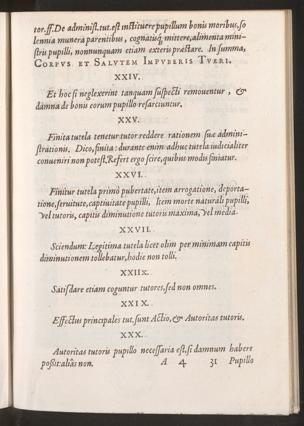 tor.ff. De administ.tut. est instituere pupillum bonis moribus, so
lennia munera parentibus, cognatisq́ mittere, alimenta mini-
stris pupilli, nonnunquam etiam exteris præstare. In summa,
CORPVS ET SALVTEM IMPVBERIS TVERI.
XXIV.
Et hoc si neglexerint tanquam suspecti remouentur, &
damna de bonis eorum pupillo resarciuntur.
XXV.
Finita tutela tenetur tutor reddere rationem suæ admini-
strationis. Dico, finita: durante enim adhuc tutela iudicialiter
conueniri non potest. Refert ergo scire, quibus modis finiatur.
XXVI.
Finitur tutela primò pubertate, item arrogatione, deporta-
tione, seruitute, captiuitate pupilli, Item morte naturali pupilli,
vel tutoris, capitis diminutione tutoris maxima, vel media.
XXVII.
Sciendum: Legitima tutela licet olim per minimam capitis
diminutionem tollebatur, hodie non tolli.
XXIIX.
Satisdare etiam coguntur tutores, sed non omnes.
XXIX.
Effectus principales tut. sunt Actio, & Autoritas tutoris.
XXX.
Autoritas tutoris pupillo necessaria est, si damnum habere
possit: aliàs non. A 4 31 Pupillo